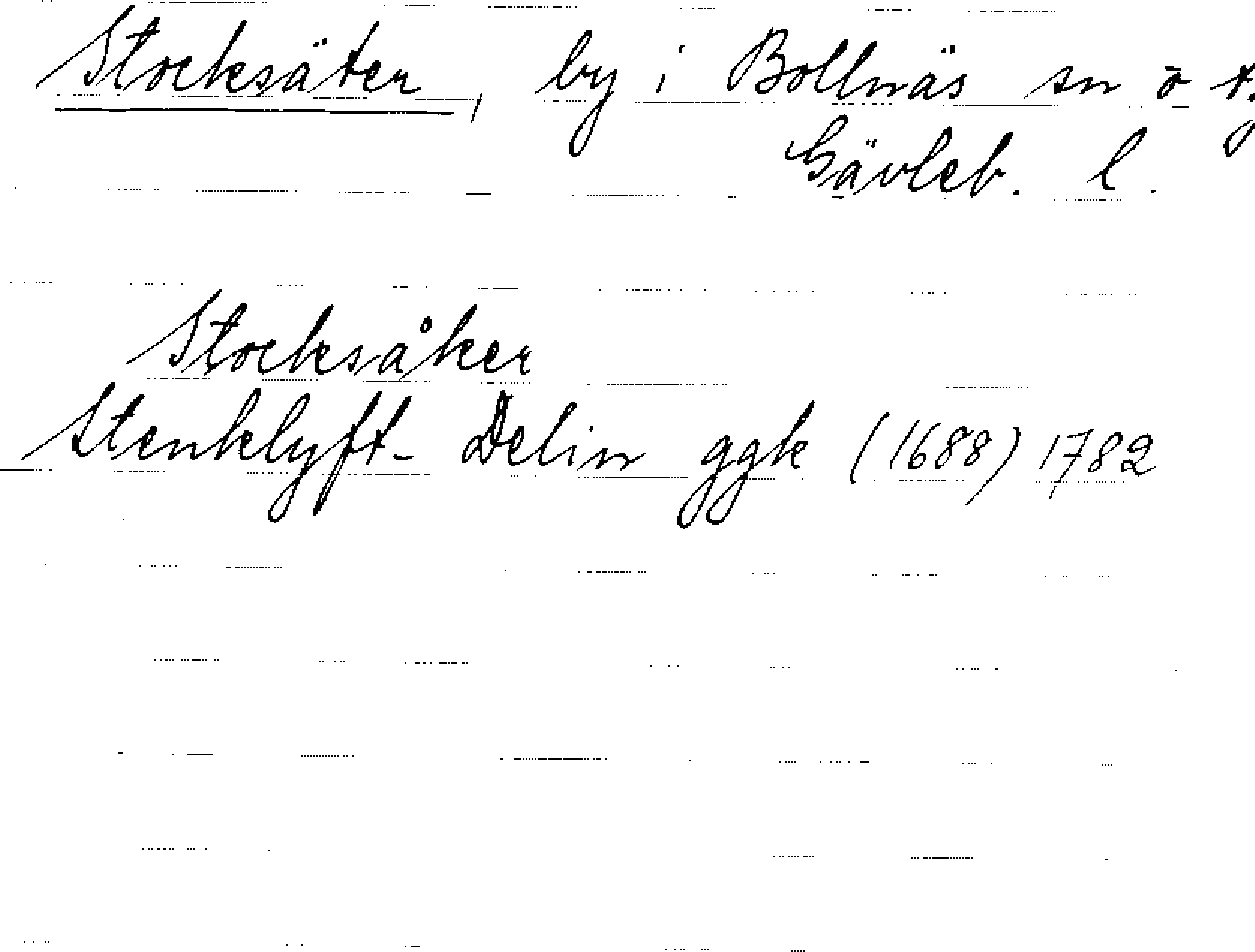 Stocksäter, by i Bollnäs sn o tg
Gävleb. l.
Stocksåker
Stenklyft- Delin ggk (1688) 1782